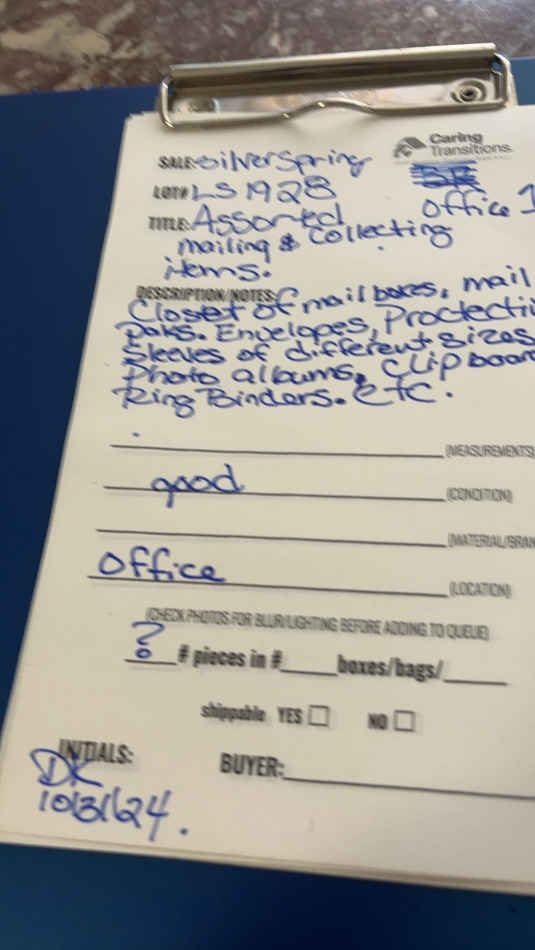 Caring
Transitions
SALE: SilverSpring
LOT# LS 1928
Office 1
TITLE: Assorted
mailing & Collecting
items.
DESCRIPTION/NOTES:
Closet of mail boxes, mail
Paks. Envelopes, Proctecti
Sleeves of different sizes
Photo albums, Clip board
Ring Binders. etc.
(MEASUREMENTS)
good (CONDITION)
(MATERIAL/BRAN
Office (LOCATION)
(CHECK PHOTOS FOR BLUR/LIGHTING BEFORE ADDING TO QUEUE)
? # pieces in # boxes/bags/
shippable YES ☐ NO ☐
INITIALS: BUYER:
DK
10/31/24.